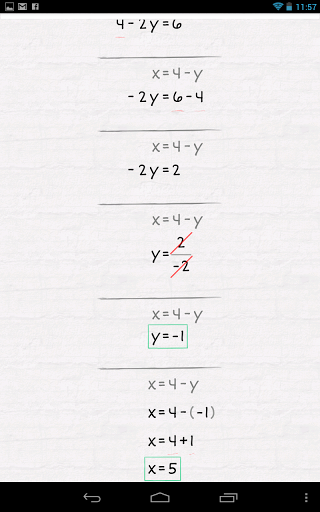 11:57
4-2y=6
x=4-y
-2y=6-4
x=4-y
-2y=2
x=4-y
y=2/-2
x=4-y
y=-1
x=4-y
x=4-(-1)
x=4+1
x=5